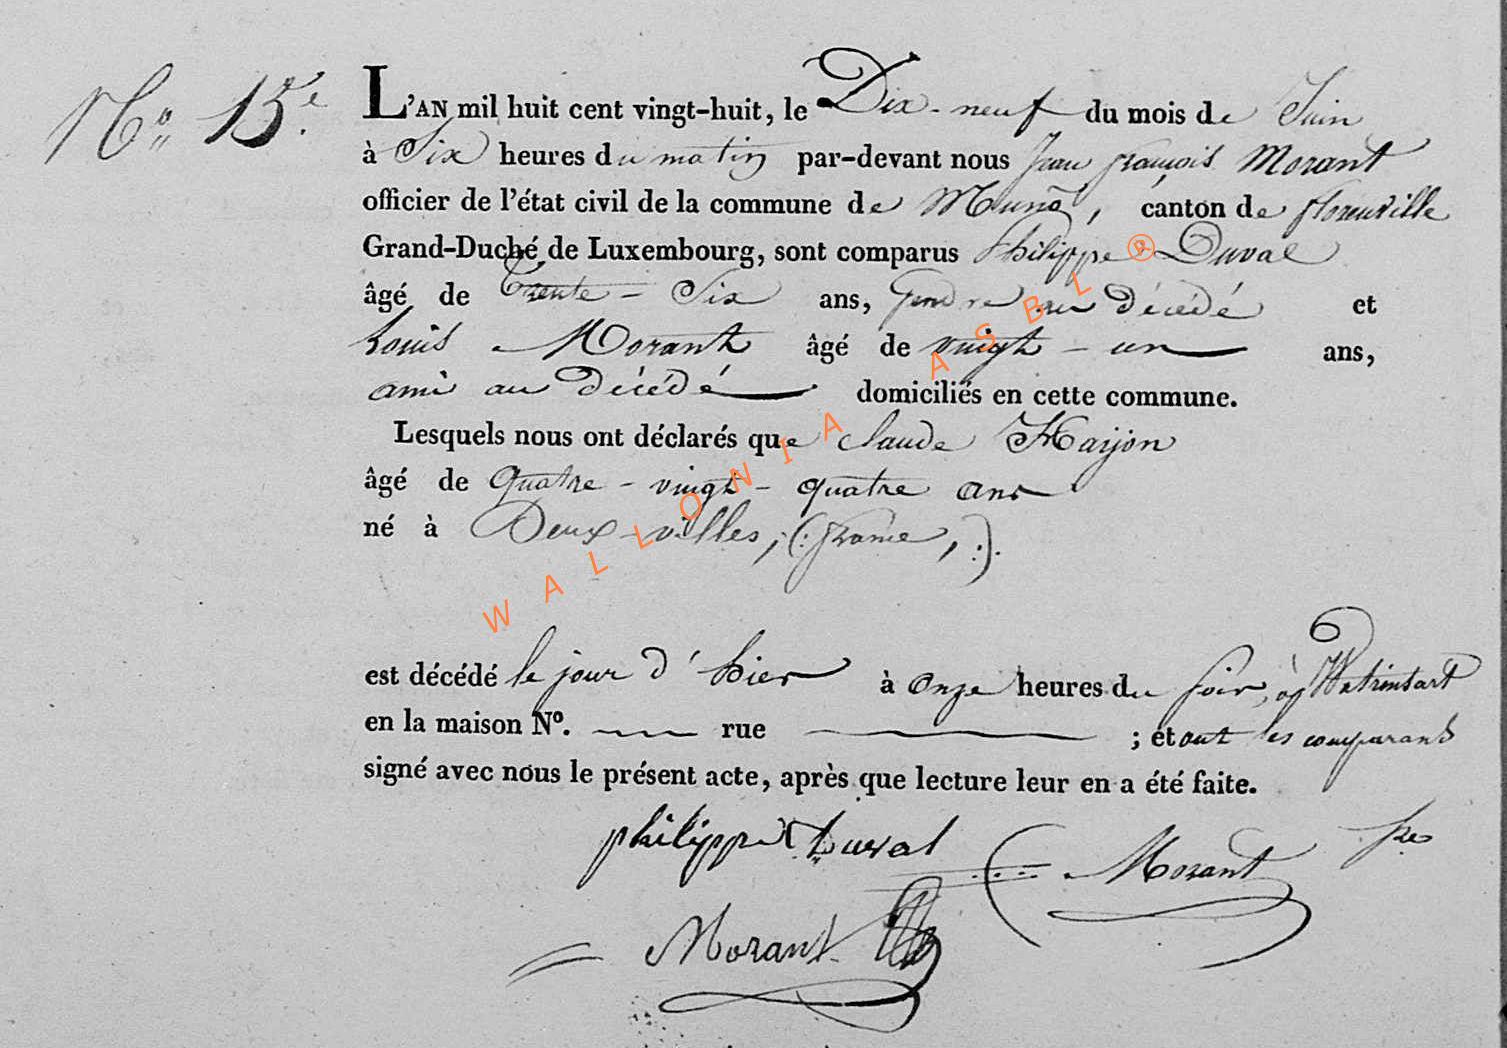 No 15.e
L'AN mil huit cent vingt-huit, le Dix-neuf du mois de Juin
à Six heures du matin par-devant nous Jean françois Morant
officier de l'état civil de la commune de Muno, canton de florenville
Grand-Duché de Luxembourg, sont comparus Philippe Duval
âgé de Trente-Six ans, Gendre au Décédé et
Louis Morant âgé de vingt-un ans,
ami au Décédé domiciliés en cette commune.
Lesquels nous ont déclarés que Claude
âgé de quatre-vingt-quatre ans
né à Deux-villes, (: france, :).
est décédé le jour d'hier à onze heures du soir, à Watrinsart
en la maison No. rue ; et ont les comparans
signé avec nous le présent acte, après que lecture leur en a été faite.
philippe Duval Morant
Morant
WALLONIA ASBL ®